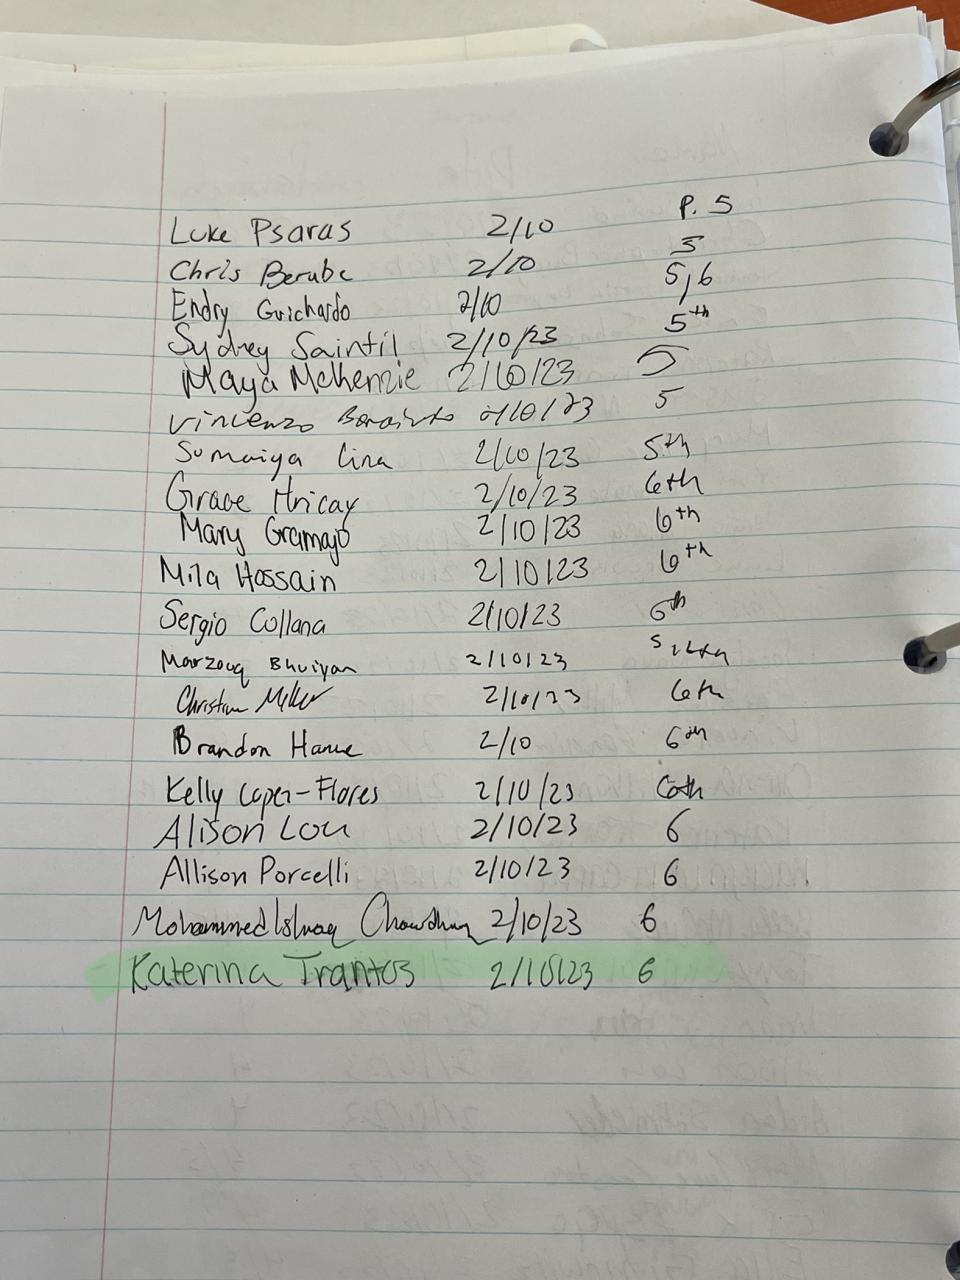 Luke Psaras 2/10 P. 5
Chris Berube 2/10 5
Endry Guichardo 2/10 5,6
Sydney Saintil 2/10/23 5th
Maya McKenzie 2/10/23 5
Vincenzo 2/10/23 5
Sumaiya Lina 2/10/23 5th
Grace Hricay 2/10/23 6th
Mary Gramajo 2/10/23 6th
Mila Hossain 2/10/23 6th
Sergio Collana 2/10/23 6th
Marzooq Bhuiyan 2/10/23
Christian Miller 2/10/23 6th
Brandon 2/10 6th
Kelly Lopez-Flores 2/10/23 6th
Alison Lou 2/10/23 6
Allison Porcelli 2/10/23 6
Mohammed Ishraq Chowdhury 2/10/23 6
Katerina Trantos 2/10/23 6